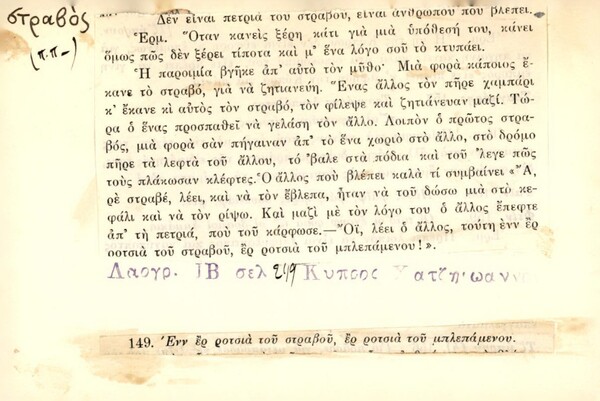 στραβὸς
(π.π-)
Δὲν εἶναι πετριὰ τοῦ στραβοῦ, εἶναι ἀνθρώπου ποὺ βλέπει.
Ἑρμ. Ὅταν κανεὶς ξέρῃ κάτι γιὰ μιὰ ὑπόθεσή του, κάνει
ὅμως πῶς δὲν ξέρει τίποτα καὶ μ’ ἕνα λόγο σοῦ τὸ κτυπάει.
Ἡ παροιμία βγῆκε ἀπ’ αὐτὸ τὸν μῦθο· Μιὰ φορὰ κάποιος ἔ-
κανε τὸ στραβό, γιὰ νὰ ζητιανεύῃ. Ἕνας ἄλλος τὸν πῆρε χαμπάρι
κ’ ἔκανε κι αὐτὸς τὸν στραβό, τὸν φίλεψε καὶ ζητιάνευαν μαζί. Τώ-
ρα ὁ ἕνας προσπαθεῖ νὰ γελάσῃ τὸν ἄλλο. Λοιπὸν ὁ πρῶτος στρα-
βός, μιὰ φορὰ σὰν πήγαιναν ἀπ’ τὸ ἕνα χωριὸ στὸ ἄλλο, στὸ δρόμο
πῆρε τὰ λεφτὰ τοῦ ἄλλου, τό ’βαλε στὰ πόδια καὶ τοῦ ’λεγε πῶς
τοὺς πλάκωσαν κλέφτες. Ὁ ἄλλος ποὺ βλέπει καλὰ τί συμβαίνει «Ἄ,
ρὲ στραβέ, λέει, καὶ νὰ τὸν ἔβλεπα, ἤταν νὰ τοῦ δώσω μιὰ στὸ κε-
φάλι καὶ νὰ τὸν ρίψω. Καὶ μαζὶ μὲ τὸν λόγο του ὁ ἄλλος ἔπεφτε
ἀπ’ τὴ πετριά, ποὺ τοῦ κάρφωσε.—Ὄϊ, λέει ὁ ἄλλος, τούτη ἐνν ἒρ
ροτσιὰ τοῦ στραβοῦ, ἒρ ροτσιὰ τοῦ μπλεπάμενου!».
Λαογρ. ΙΒ σελ 249 Κυπρος Χατζηϊωανν
149. Ἐνν ἒρ ροτσιὰ τοῦ στραβοῦ, ἒρ ροτσιὰ τοῦ μπλεπάμενου.